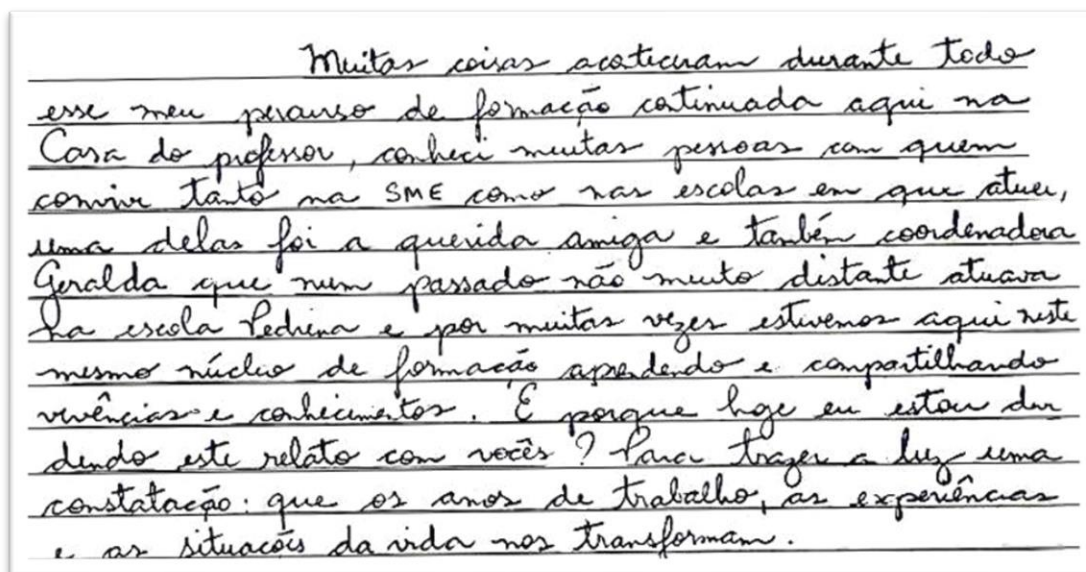 Muitas coisas aconteceram durante todo
esse meu percurso de formação continuada aqui na
Casa do professor, conheci muitas pessoas com quem
convivi tanto na SME como nas escolas em que atuei,
uma delas foi a querida amiga e também coordenadora
Geralda que num passado não muito distante atuava
na escola Pedrina e por muitas vezes estivemos aqui neste
mesmo núcleo de formação aprendendo e compartilhando
vivências e conhecimentos. E porque hoje eu estou divi
dindo este relato com vocês? Para trazer a luz uma
constatação: que os anos de trabalho, as experiências
e as situações da vida nos transformam.